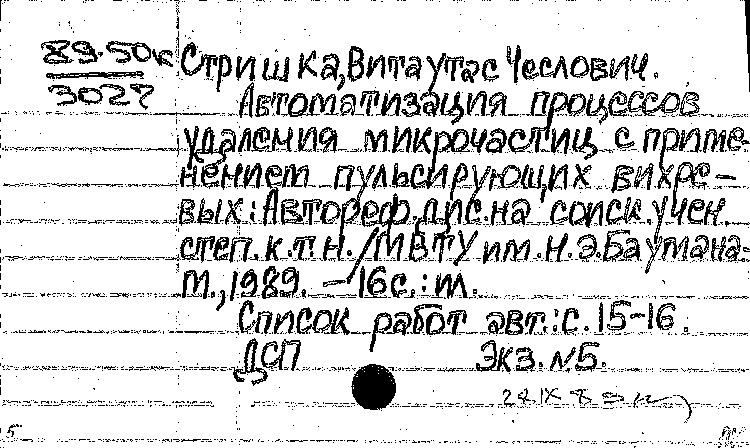 89-50к
3027
Стришка, Витаутас Чеслович.
Автоматизация процессов
удаления микрочастиц с приме-
нением пульсирующих вихре-
вых: Автореф.дис.на соиск.учен.
степ.к.т.н./МВТУ им.Н.Э.Баумана.-
М.,1989. - 16с.: ил.
Список работ авт.: с.15-16.
ДСП Экз.N5.
5